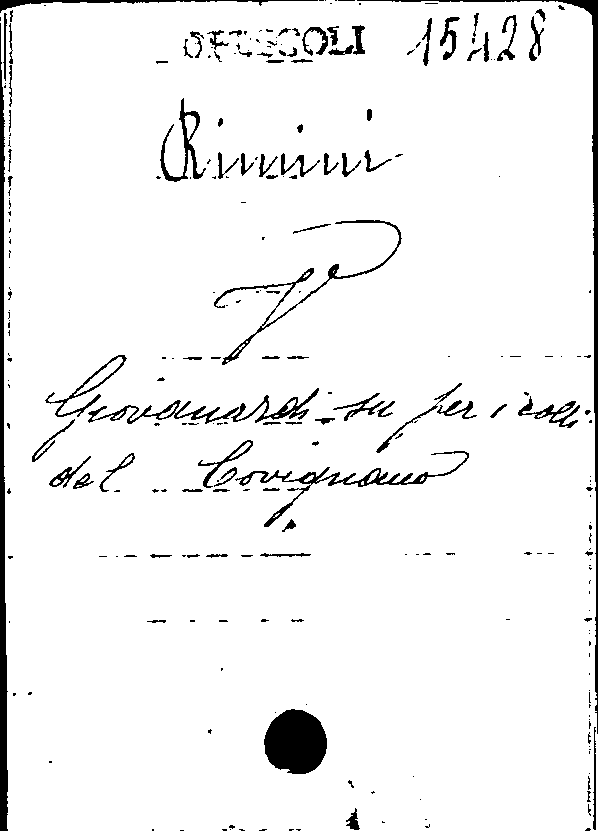 OPUSCOLI 15428
Rimini
V
Giovanardi su per i colli
del Covignano